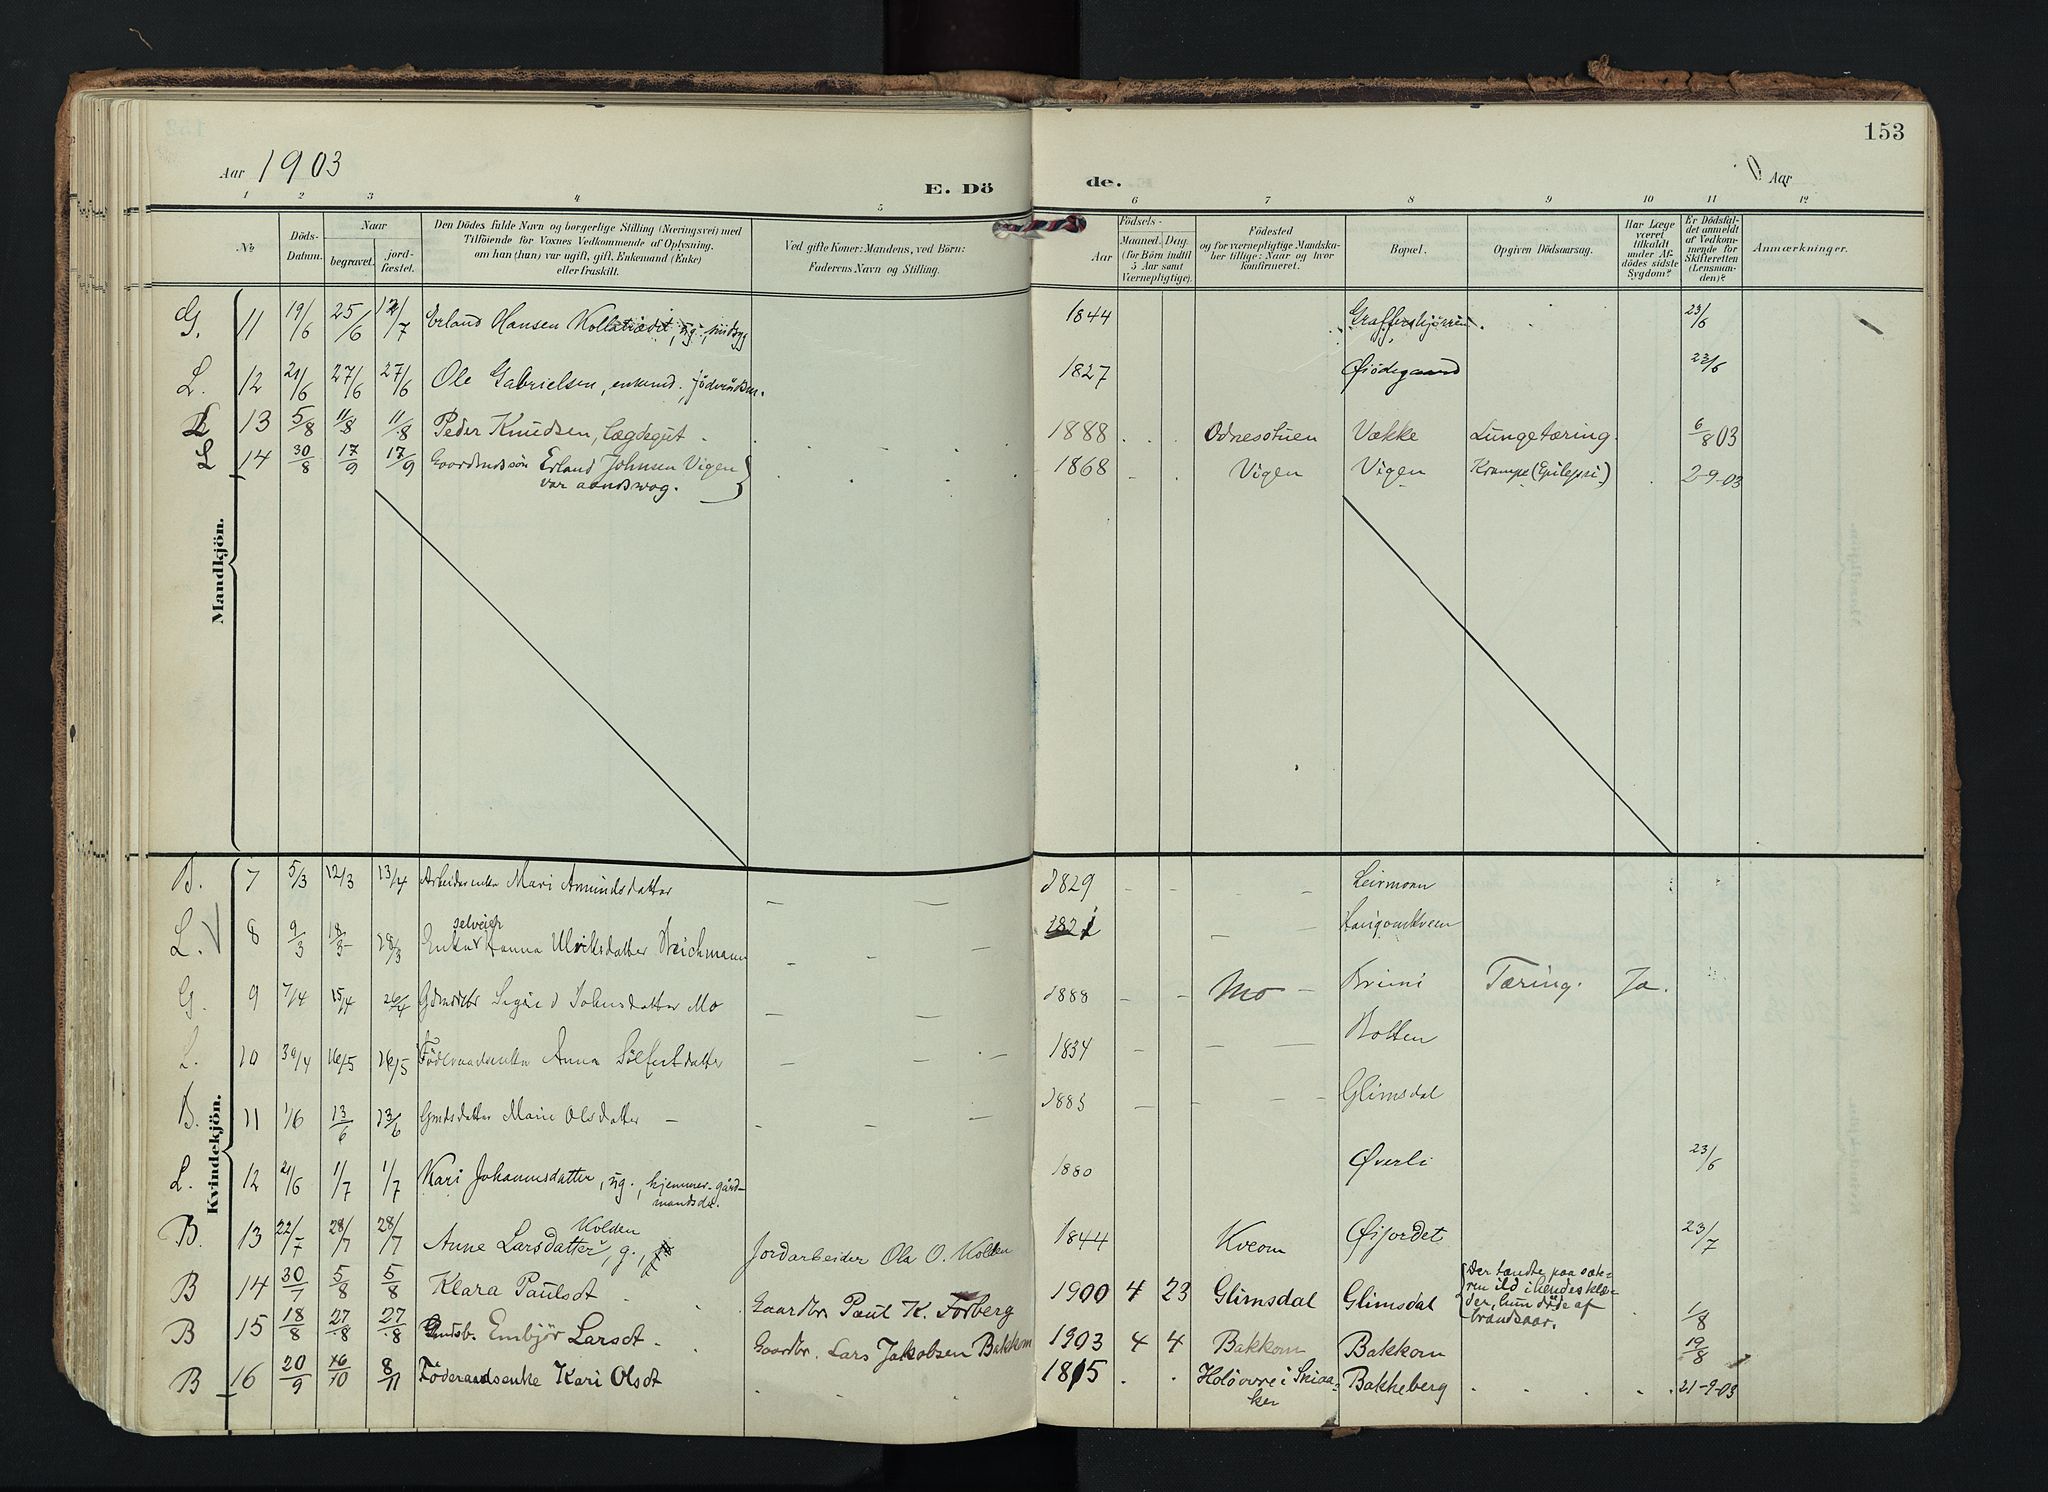 153
Aar 1903
E. Dö
de.
Aar
1 2 3 4 5 6 7 8 9 10 11 12
No
Döds-
Datum.
Naar
begravet.
jord-
fæstet.
Den Dödes fulde Navn og borgerlige Stilling (Næringsvei) med
Tilföiende for Voxnes Vedkommende af Oplysning,
om han (hun) var ugift, gift, Enkemand (Enke)
eller fraskilt.
Ved gifte Koner: Mandens, ved Börn:
Faderens Navn og Stilling.
Födsels-
Aar
Maaned. Dag.
(for Börn indtil
5 Aar samt
Værnepligtige).
Födested
og for værnepligtige Mandska-
ber tillige: Naar og hvor
konfirmeret.
Bopæl.
Opgiven Dödsaarsag.
Har Læge
været
tilkaldt
under Af-
dödes sidste
Sygdom?
Er Dödsfal-
det anmeldt
af Vedkom-
mende for
Skifteretten
(Lensman-
den)?
Anmærkninger.
Mandkjön.
G. 11 19/6 25/6 Erland Hansen 1844 23/6
L. 12 21/6 27/6 27/6 Ole Gabrielsen, enkemd. 1827 Øiödegaard 23/6
L 13 5/8 11/8 11/8 Peder Knudsen, lægdegut. 1888 Odnesstuen Vække Lungetæring. 6/8 03
L 14 30/8 17/9 17/9 Gaardmdssön Erland Johnsen Vigen 1868 Vigen Vigen Krampe (Epilepsi) 2-9-03
var aandssvag.
Kvindekjön.
B. 7 5/3 12/3 13/4 Arbeiderenke Mari Amundsdatter 1829 Leirmoen
selveier
L. V 8 9/3 18/3 28/3 Enke Hanna Ulriksdatter 1821
G. 9 7/4 15/4 26/4 Johnsdatter Mo 1888 Mo Brimi Tæring. Ja.
L. 10 30/4 16/5 16/5 Föderaadsenke Anna Sölfestdatter 1834 Botten
B. 11 1/6 13/6 13/6 Gmdsdatter Marie Olsdatter 1883 Glimsdal
L. 12 21/6 1/7 1/7 Kari Johannesdatter, ug., hjemmev. gård- 1880 Øverli 23/6
mandsdt.
Kolden
B. 13 22/7 28/7 28/7 Anne Larsdatter, g., Jordarbeider Ola O. Kolden 1844 Kveom Øijordet 23/7
B 14 30/7 5/8 5/8 Klara Paulsdt. Gaardbr. Paul K. Forberg 1900 4 23 Glimsdal Glimsdal Der tændte paa sæte-
ren ild i hendes klæ-
der, hun döde af
brandsaar. 1/8
B 15 18/8 27/8 27/8 Embjör Larsdt. Gaardbr. Lars Jakobsen Bakkom 1903 4 4 Bakkom Bakkom 19/8
B 16 20/9 16/10 8/11 Föderaadsenke Kari Olsdt 1815 Holøvre i Skiaa-
ker Bakkeberg 21-9-03